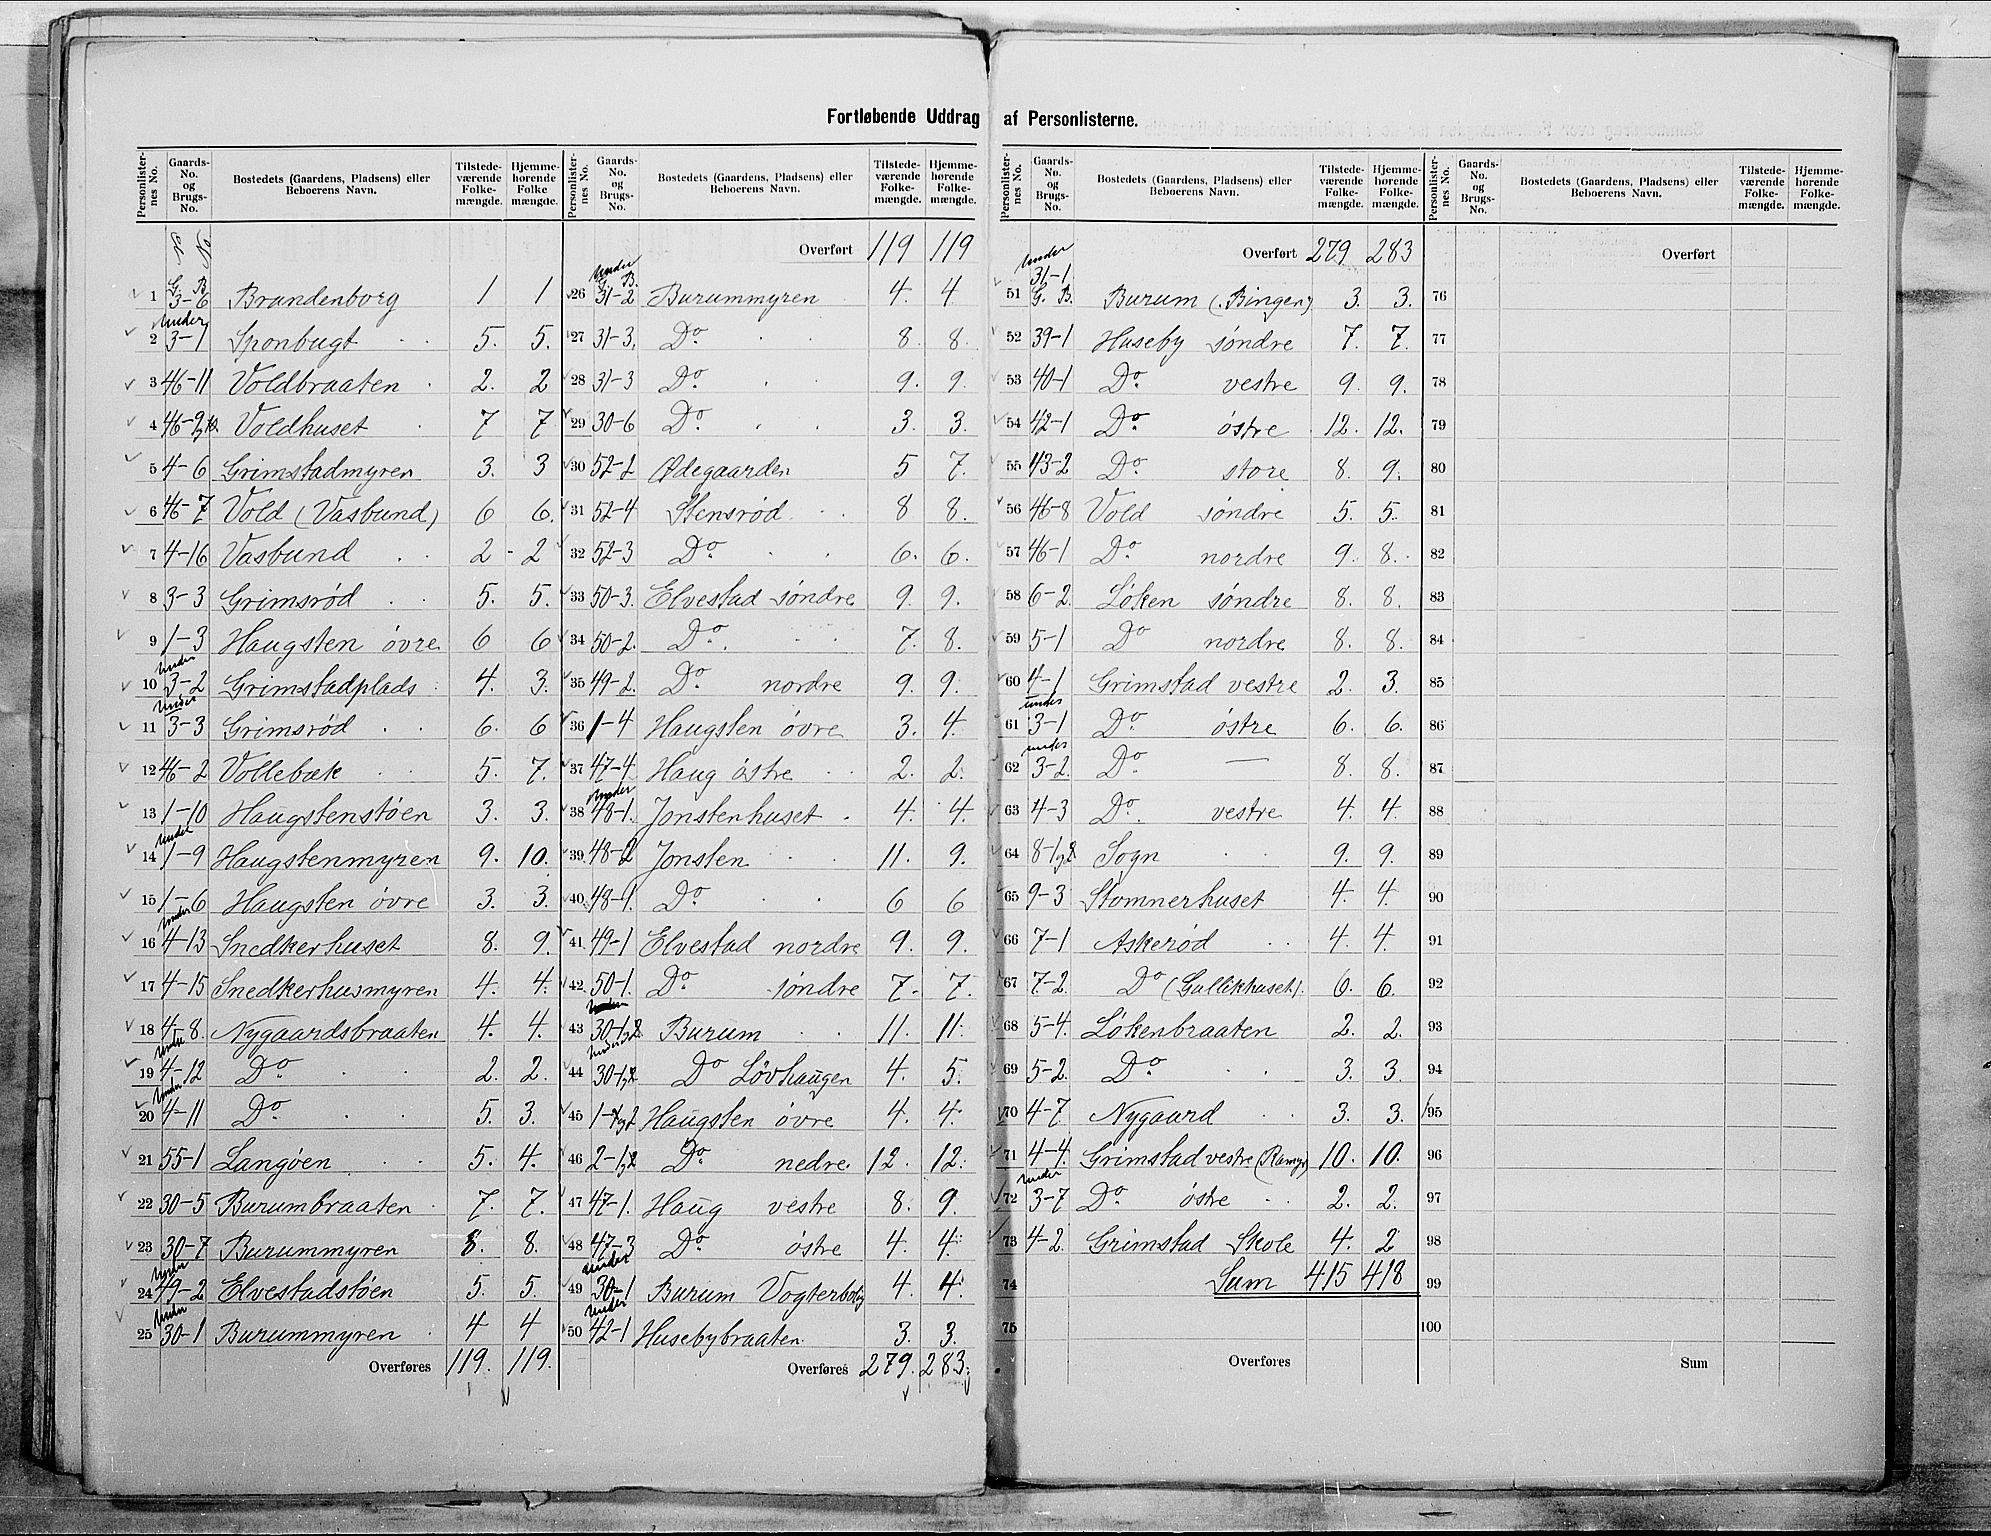 Fortløbende Uddrag af Personlisterne.
Personlister-nes No. | Gaards-No. og Brugs-No. | Bostedets (Gaardens, Pladsens) eller Beboerens Navn. | Tilstede-værende Folke-mængde. | Hjemme-hørende Folke mængde.
No No
G. B.
1 3-6 Brandenborg 1 1
under
2 3-1 Sponbugt 5. 5.
3 46-11 Voldbraaten 2. 2
4 46-9,10. Voldhuset 7 7
5 4-6 Grimstadmyren 3. 3
6 46-7 Vold (Vasbund) 6 6.
7 4-16 Vasbund 2 - 2
8 3-3 Grimsrød 5. 5.
9 1-3 Haugsten øvre 6 6
under
10 3-2 Grimstadplads 4. 3.
under
11 3-3 Grimsrød 6. 6
12 46-2 Vollebæk 5. 7.
13 1-10 Haugstenstøen 3. 3.
under
14 1-9 Haugstenmyren 9. 10.
15 1-6 Haugsten øvre 3. 3.
under
16 4-13 Snedkerhuset 8. 9.
17 4-15 Snedkerhusmyren 4. 4.
18 4-8. Nygaardsbraaten 4. 4.
under
19 4-12 Do 2. 2.
under
20 4-11 Do 5. 3.
21 55-1 Langøen 5. 4.
22 30-5 Burumbraaten 7. 7.
23 30-7 Burummyren 8. 8.
under
24 49-2 Elvestadstøen 5. 5.
under
25 30-1 Burummyren 4 4
Overføres 119. 119.
Personlister-nes No. | Gaards-No. og Brugs-No. | Bostedets (Gaardens, Pladsens) eller Beboerens Navn. | Tilstede-værende Folke-mængde. | Hjemme-hørende Folke-mængde.
Overført 119 119
under
G. B.
26 31-2 Burummyren 4. 4
27 31-3. Do 8. 8.
28 31-3 Do 9. 9.
29 30-6 Do 3. 3.
30 52-2 Ødegaarden 5 7.
31 52-4 Stensrød 8 8.
32 52-3 Do 6. 6.
33 50-3. Elvestad søndre 9. 9.
34 50-2. Do. 7. 8.
35 49-2. Do nordre 9. 9.
36 1-4 Haugsten øvre 3. 4.
37 47-4. Haug østre 2. 2.
under
38 48-1. Jonstenhuset 4. 4.
39. 48-2 Jonsten 11. 9.
40 48-1. Do 6 6
41. 49-1 Elvestad nordre 9. 9.
42. 50-1. Do søndre 7. 7.
43 30-1,2 Burum 11. 11.
under
44 30-1,2 Do Løvhaugen 4. 5.
45 1-1,2 Haugsten øvre 4. 4.
46 2-1,2 Do nedre. 12. 12.
47 47-1. Haug vestre 8. 9.
48 47-3 Do østre 4. 4.
under
49 30-1 Burum Vogterbolig 4. 4.
under
50 42-1 Husebybraaten. 3. 3.
Overføres 279. 283.
Personlister-nes No. | Gaards-No. og Brugs-No. | Bostedets (Gaardens, Pladsens) eller Beboerens Navn. | Tilstede-værende Folke-mængde. | Hjemme-hørende Folke-mængde.
Overført 279 283
under
31-1
51 G. B. Burum (Bingen) 3. 3.
52 39-1 Huseby søndre 7. 7.
53 40-1 Do vestre 9. 9.
54 42-1 Do østre 12. 12.
55 43-2 Do store 8. 9.
56 46-8 Vold søndre 5. 5.
57 46-1 Do nordre 9. 8.
58 6-2. Løken søndre 8. 8.
59 5-1 Do nordre 8. 8.
60 4-1 Grimstad vestre 2. 3.
under
61 3-1 Do østre 6. 6.
under
62 3-2. Do — 8. 8.
63 4-3 Do. vestre 4. 4
64 8-1,2 Sogn 9. 9.
65 9-3 Stomnerhuset 4. 4.
66 7-1 Askerød 4. 4.
67 7-2. Do (Gullikhuset). 6. 6.
68 5-4. Løkenbraaten 2. 2.
69 5-2. Do 3. 3.
70 4-7. Nygaard 3. 3.
71 4-4. Grimstad vestre (Ramyr) 10. 10.
under
72 3-7 Do østre 2. 2.
73 4-2. Grimstad Skole 4. 2
74 Sum 415 418
75
Overføres
Personlister-nes No. | Gaards-No. og Brugs-No. | Bostedets (Gaardens, Pladsens) eller Beboerens Navn. | Tilstede-værende Folke-mængde. | Hjemme-hørende Folke-mængde.
Overført
76
77
78
79
80
81
82
83
84
85
86
87
88
89
90
91
92
93
94
95
96
97
98
99
100
Sum